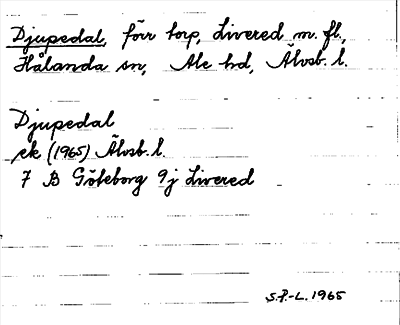 Djupedal, förr torp, Livered m. fl.,
Hålanda sn, Ale hd, Älvsb. l.
Djupedal
ek (1965) Älvsb. l.
7 B Göteborg 9j Livered
S.P.-L. 1965